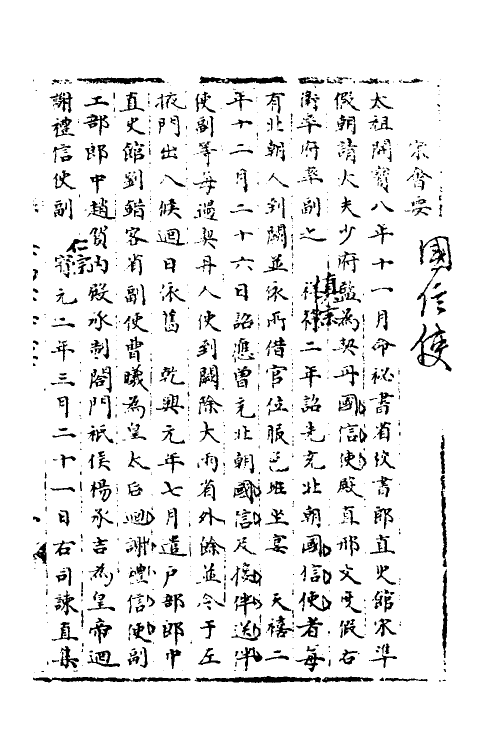 宋會要
國信使
太祖開寶八年十一月命祕書省校書郎直史館宋準
假朝請大夫少府監為契丹國信使殿直邢文度假右
衛率府率副之 真宗 祥符二年詔先充北朝國信使者每
有北朝人到闕並依所借官位服色班坐宴 天禧二
年十二月二十六日詔應曾充北朝國信及接伴送伴
使副等每過契丹人使到闕除大兩省外餘並令于左
掖門出入候迴日依舊 乾興元年七月遣户部郎中
直史館劉鍇客省副使曹曦為皇太后迴謝禮信使副
工部郎中趙賀內殿承制閤門祇候楊承吉為皇帝迴
謝禮信使副 仁宗 寶元二年三月二十一日右司諫直集